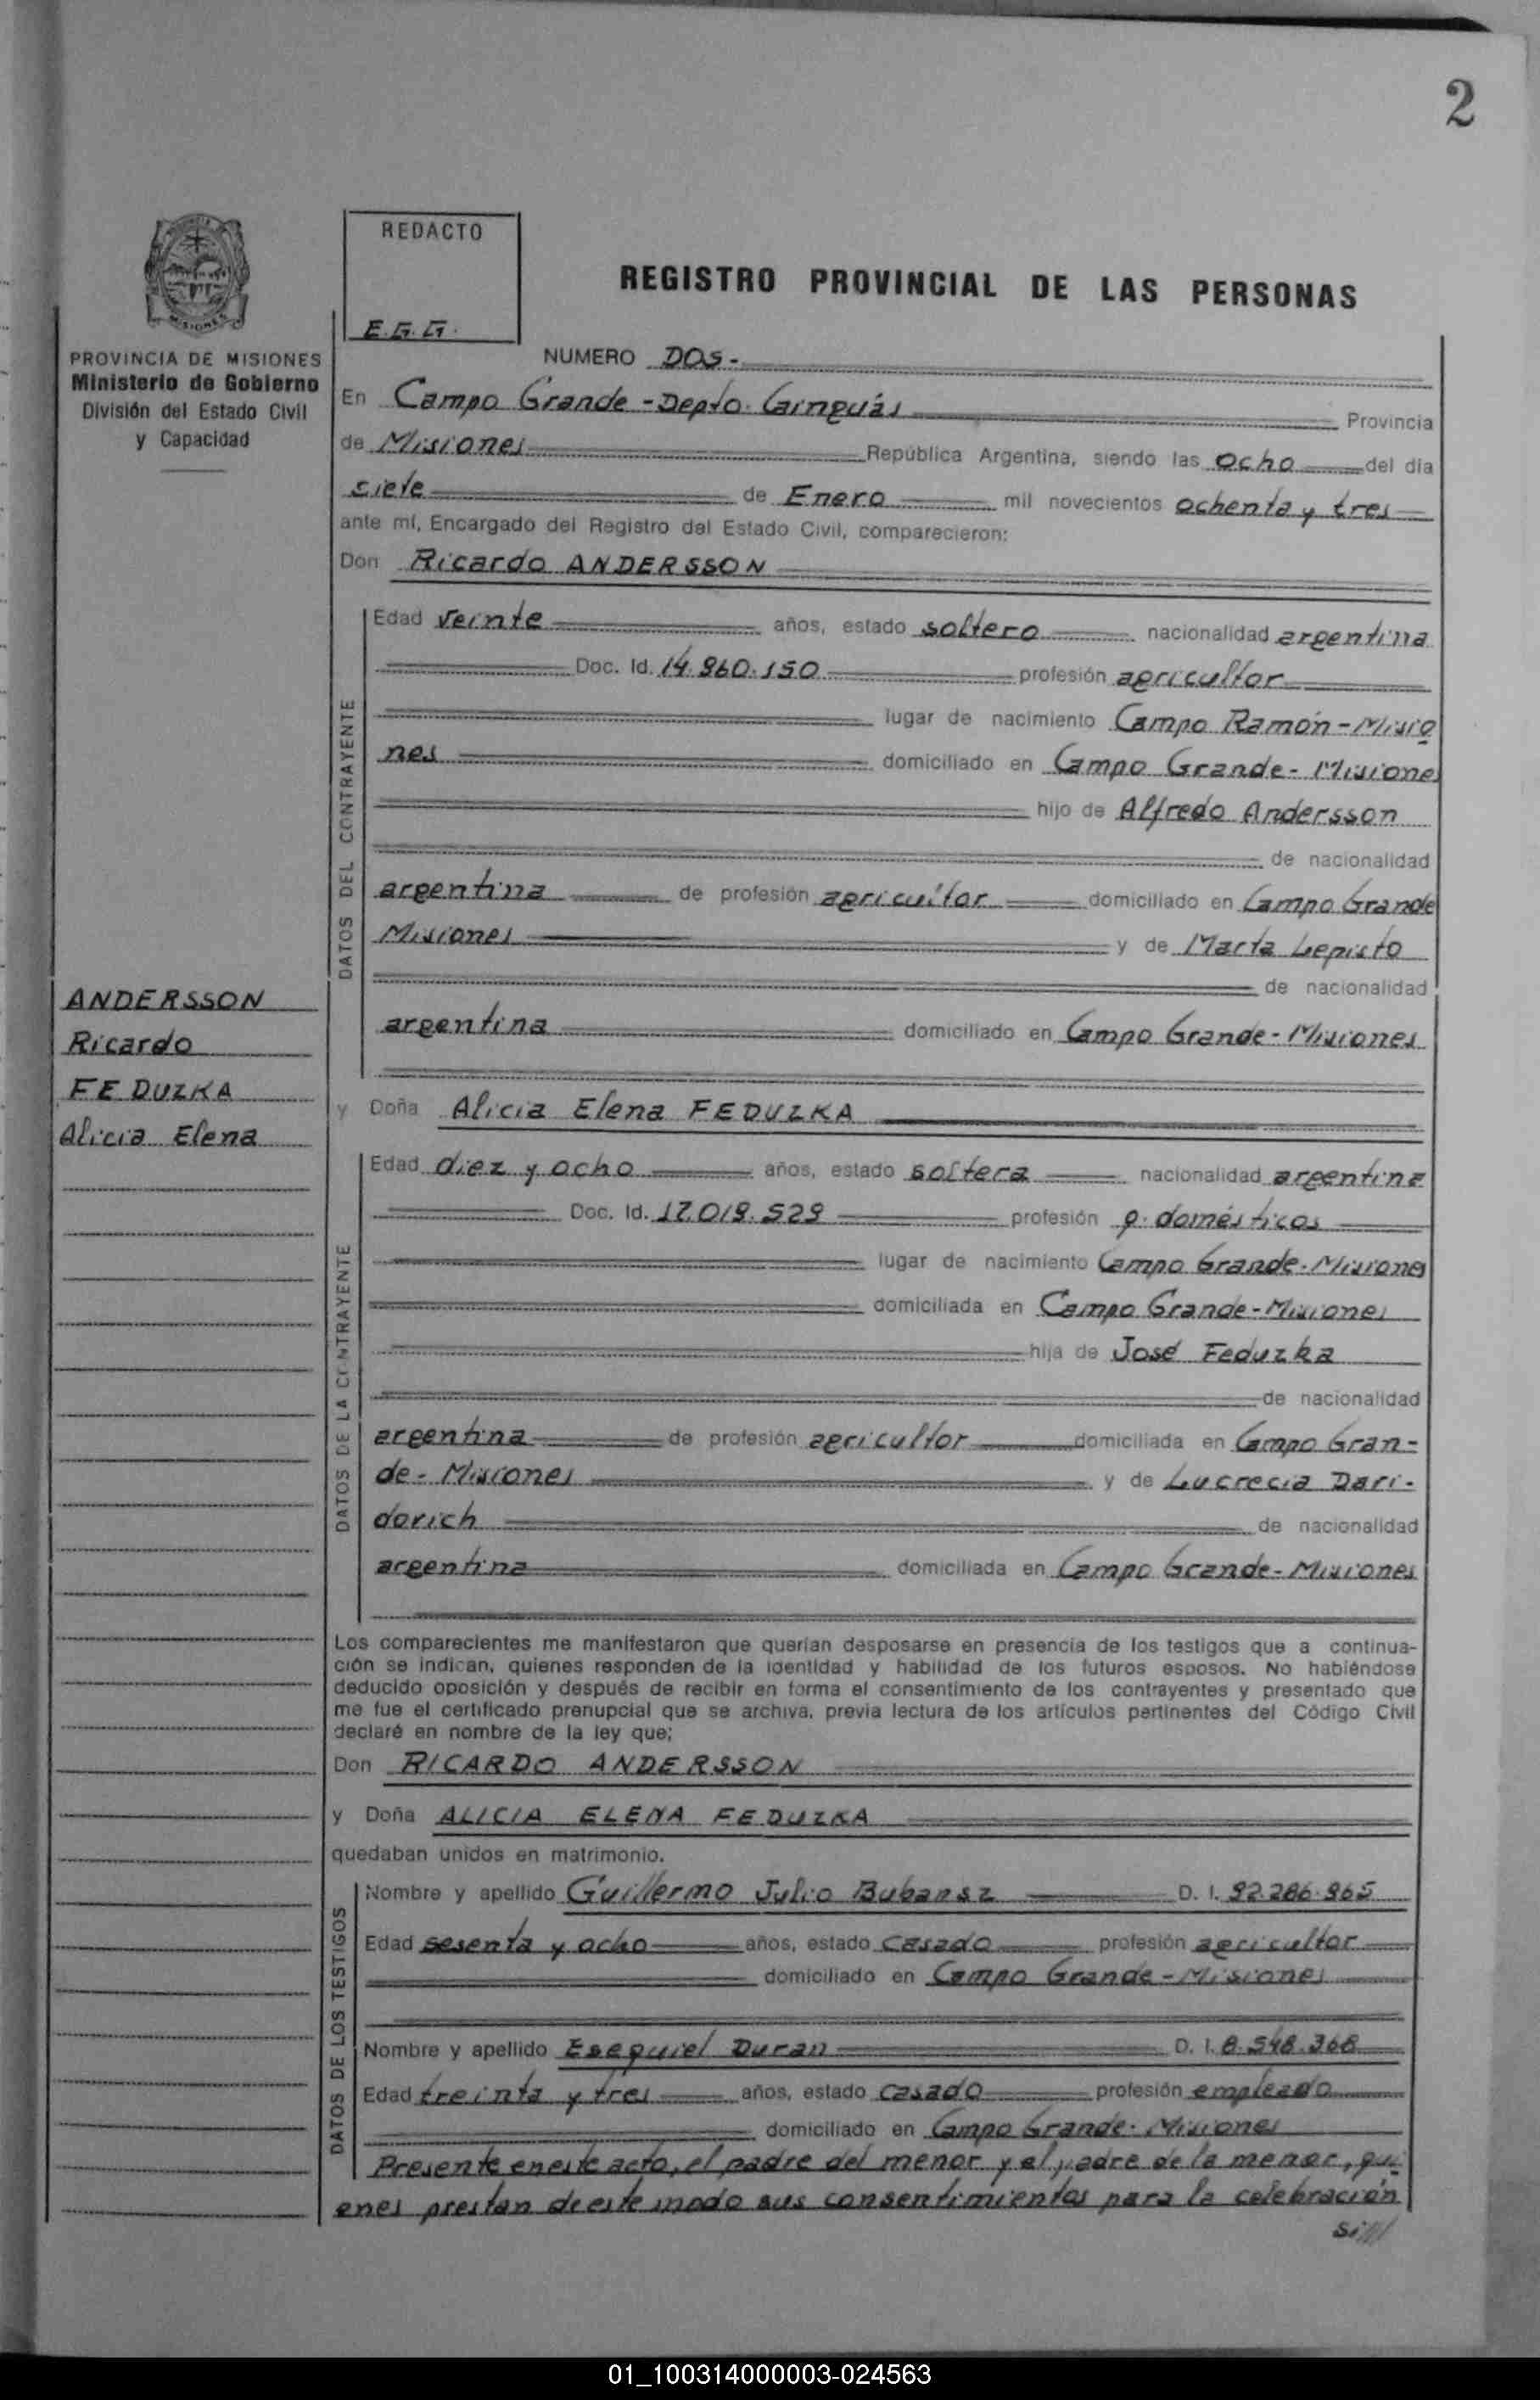 2
REDACTO
E.G.G.
REGISTRO PROVINCIAL DE LAS PERSONAS
PROVINCIA DE MISIONES
Ministerio de Gobierno
División del Estado Civil
y Capacidad
NUMERO DOS.-
En Campo Grande - Depto. Cainguás Provincia
de Misiones República Argentina, siendo las ocho del día
siete de Enero mil novecientos ochenta y tres
ante mí, Encargado del Registro del Estado Civil, comparecieron:
Don Ricardo ANDERSSON
DATOS DEL CONTRAYENTE
Edad veinte años, estado soltero nacionalidad argentina
Doc. Id. 14.960.150 profesión agricultor
lugar de nacimiento Campo Ramón - Misio
nes domiciliado en Campo Grande - Misiones
hijo de Alfredo Andersson
de nacionalidad
argentina de profesión agricultor domiciliado en Campo Grande
Misiones y de Marta Lepisto
de nacionalidad
argentina domiciliado en Campo Grande - Misiones
ANDERSSON
Ricardo
FEDUZKA
Alicia Elena
y Doña Alicia Elena FEDUZKA
DATOS DE LA CONTRAYENTE
Edad diez y ocho años, estado soltera nacionalidad argentina
Doc. Id. 17.019.529 profesión q. domésticos
lugar de nacimiento Campo Grande - Misiones
domiciliada en Campo Grande - Misiones
hija de José Feduzka
de nacionalidad
argentina de profesión agricultor domiciliada en Campo Gran-
de - Misiones y de Lucrecia Dari-
dorich de nacionalidad
argentina domiciliada en Campo Grande - Misiones
Los comparecientes me manifestaron que querían desposarse en presencia de los testigos que a continua-
ción se indican, quienes responden de la identidad y habilidad de los futuros esposos. No habiéndose
deducido oposición y después de recibir en forma el consentimiento de los contrayentes y presentado que
me fue el certificado prenupcial que se archiva, previa lectura de los artículos pertinentes del Código Civil
declaré en nombre de la ley que:
Don RICARDO ANDERSSON
y Doña ALICIA ELENA FEDUZKA
quedaban unidos en matrimonio.
DATOS DE LOS TESTIGOS
Nombre y apellido Guillermo Julio Bubansz D. I. 92.286.965
Edad sesenta y ocho años, estado casado profesión agricultor
domiciliado en Campo Grande - Misiones
Nombre y apellido Esequiel Duran D. I. 8.548.368
Edad treinta y tres años, estado casado profesión empleado
domiciliado en Campo Grande - Misiones
Presente en este acto, el padre del menor y el padre de la menor, qui
enes prestan de este modo sus consentimientos para la celebración
01_100314000003-024563